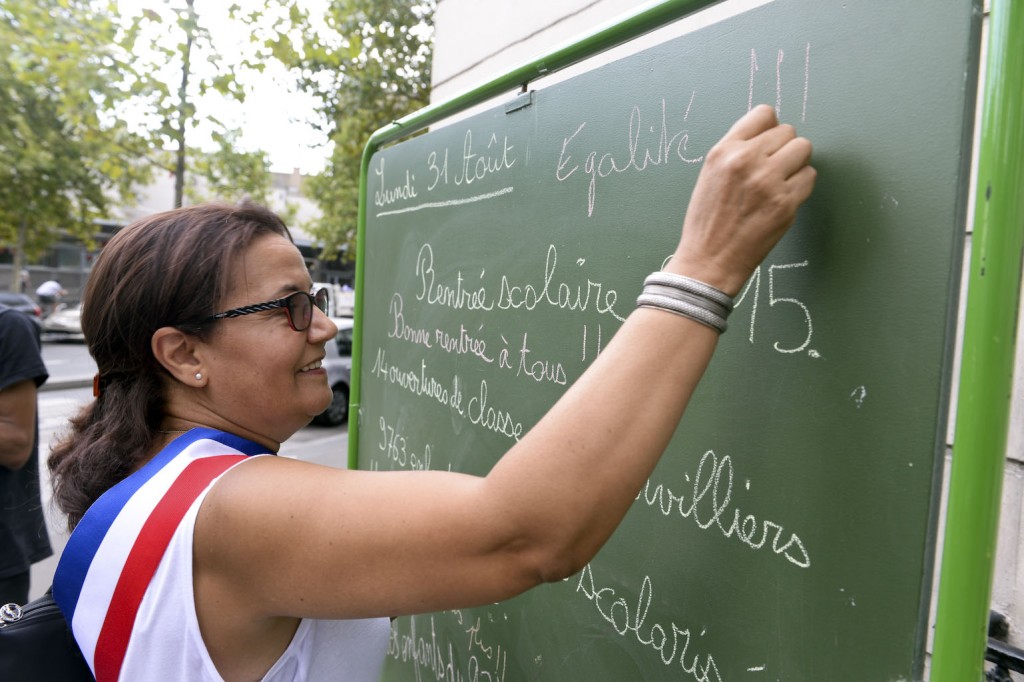 Lundi 31 Août Egalité !!!
Rentrée scolaire 15.
Bonne rentrée à tous !!
14 ouvertures de classe
9763
villiers
Scolaris
enfants du